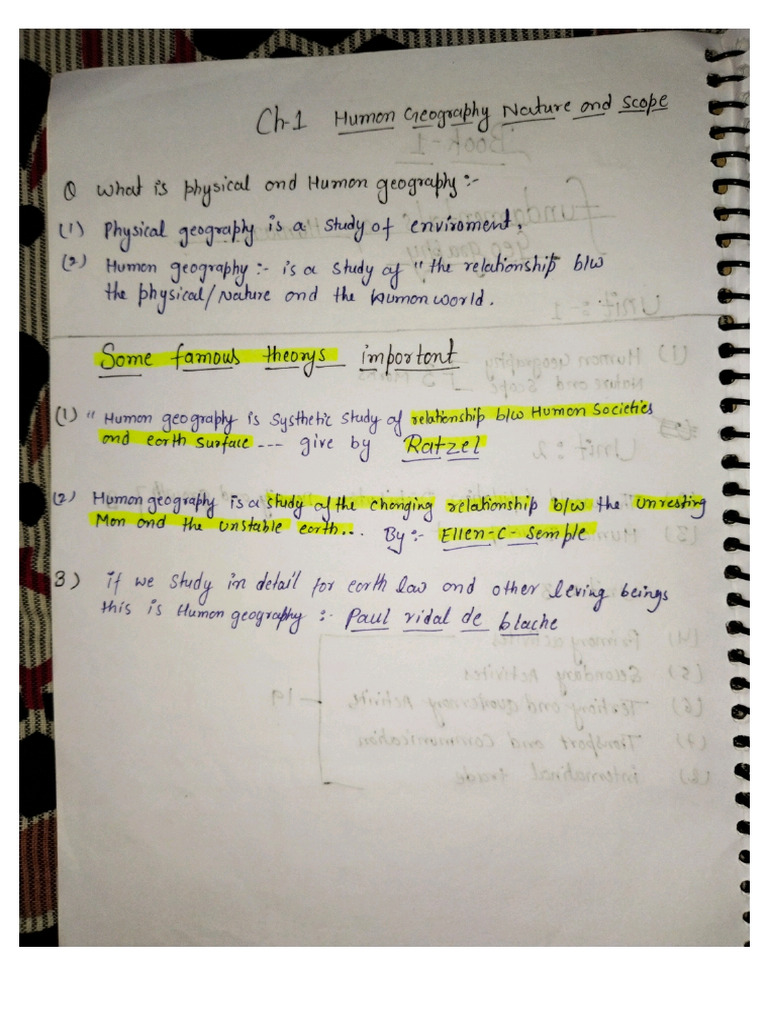 Ch-1 Human Geography Nature and Scope
Q What is physical and Human geography:-
(1) Physical geography is a study of enviroment.
(2) Human geography :- is a study of "the relationship b/w
the physical/Nature and the Human world.
Some famous theorys important
(1) " Human geography is Systhetic study of relationship b/w Human Societies
and earth surface --- give by Ratzel
(2) Human geography is a study of the changing relationship b/w the unresting
Man and the unstable earth... By:- Ellen-C-Semple
3) if we study in detail for earth law and other leving beings
this is Human geography :- Paul vidal de blache